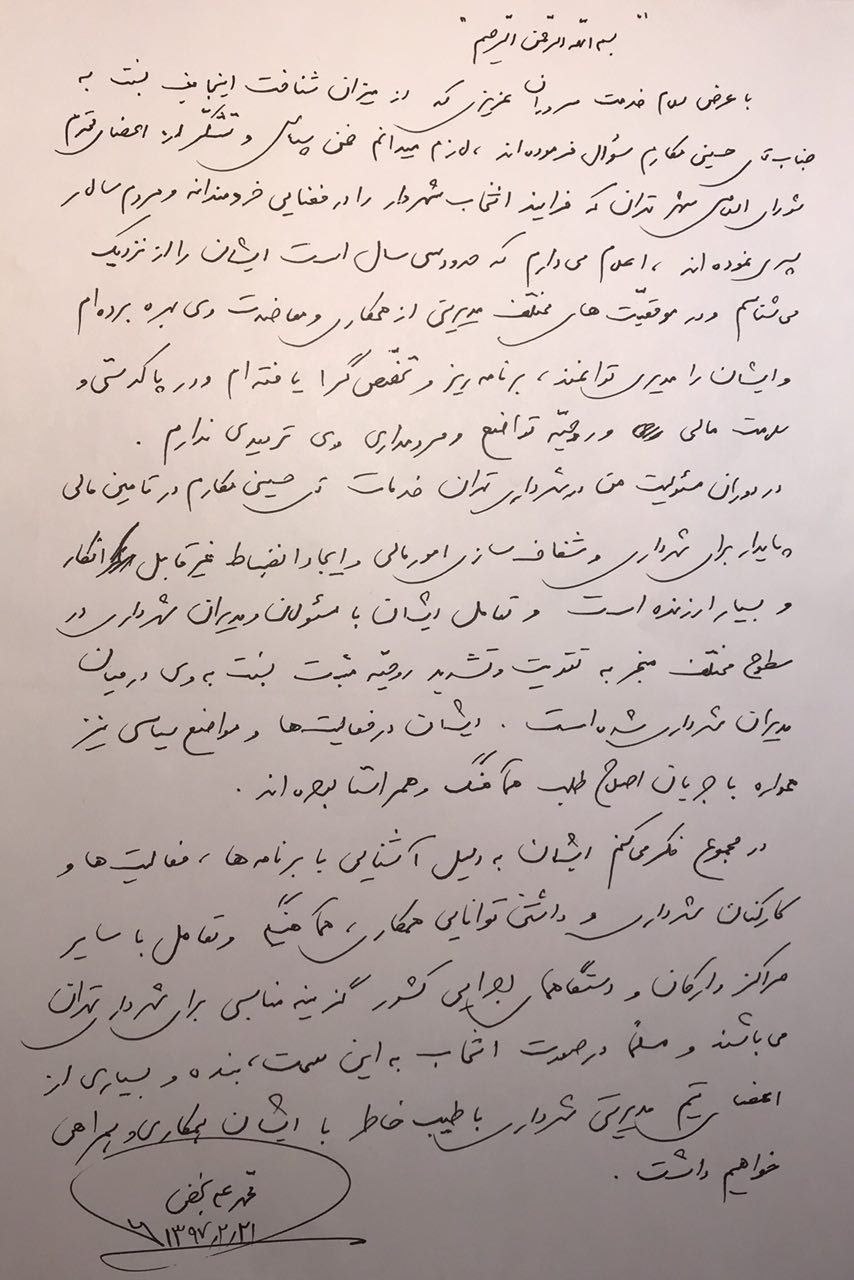 "بسم الله الرحمن الرحیم"
با عرض سلام خدمت سروران عزیزی که از میزان شناخت اینجانب نسبت به
جناب آقای حسینی مکارم سؤال فرموده‌اند، لازم میدانم ضمن سپاس و تشکّر از اعضای محترم
شورای اسلامی شهر تهران که فرایند انتخاب شهردار را در فضایی خردمندانه و مردم سالار
سپری نموده اند، اعلام می دارم که حدود سی سال است ایشان را از نزدیک
می شناسم و در موقعیّت های مختلف مدیریتی از همکاری و معاضدت وی بهره برده ام
و ایشان را مدیری توانمند، برنامه ریز و تخصّص گرا یافته ام و در پاکدستی و
سلامت مالی و روحیّه تواضع و مردمداری وی تردیدی ندارم.
در دوران مسئولیت من در شهرداری تهران خدمات آقای حسینی مکارم در تامین مالی
پایدار برای شهرداری و شفاف سازی امور مالی و ایجاد انضباط غیر قابل انکار
و بسیار ارزنده است و تعامل ایشان با مسئولان و مدیران شهرداری در
سطوح مختلف منجر به تقویت و تشدید روحیّه مثبت نسبت به وی در میان
مدیران شهرداری شده است. ایشان در فعالیت‌ها و مواضع سیاسی نیز
همواره با جریان اصلاح طلب هماهنگ و همراستا بوده اند.
در مجموع فکر می کنم ایشان به دلیل آشنایی با برنامه ها، فعالیت ها و
کارکنان شهرداری و داشتن توانایی همکاری، هماهنگی و تعامل با سایر
مراکز و ارکان و دستگاههای اجرایی کشور گزینه مناسبی برای شهرداری تهران
می باشند و مسلماً در صورت انتخاب به این سمت، بنده و بسیاری از
اعضای تیم مدیریتی شهرداری با طیب خاطر با ایشان همکاری و همراهی
خواهیم داشت.
محمد علی نجفی
۱۳۹۷/۲/۲۱